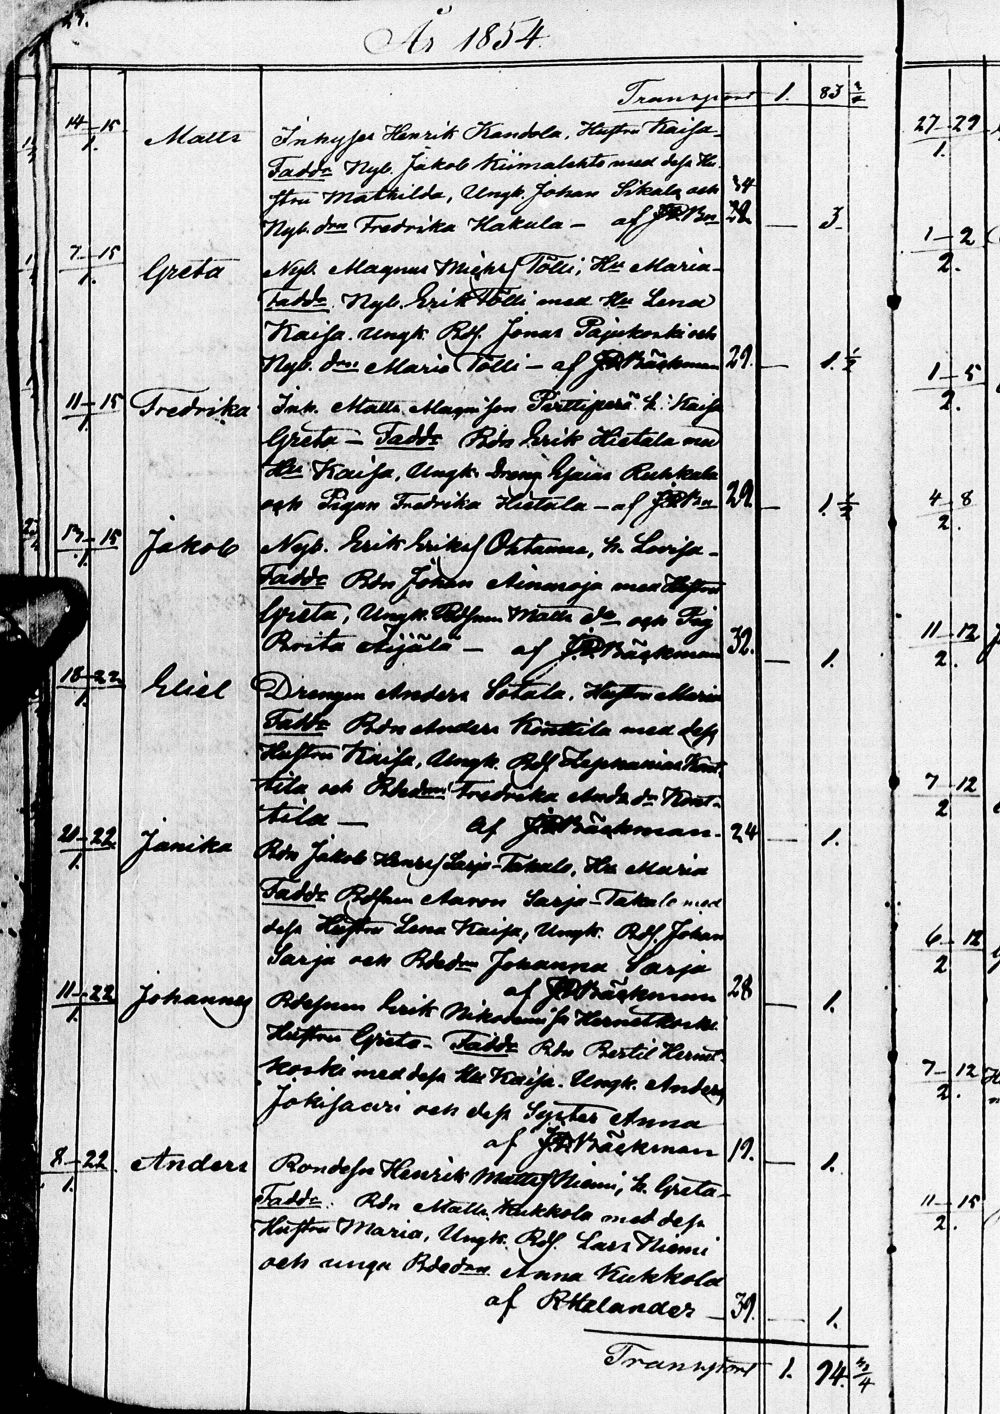 27.
År 1854.
Transport 1. 83 3/4
14–15/1. Matts Inhyses Henrik Kandola, Hustru Kaisa –
Fadd: Nyb. Jakob Kiimalehto med dess Hu-
stru Mathilda, Ungk. Johan Sikala och 34
Nyb.drn Fredrika Hakula – af 28 — 3
7–15/1. Greta Nyb. Magnus Michelss Tölli, Hu Maria –
Fadd: Nyb. Erik Tölli med Hu Lena
Kaisa. Ungk. Bds. Jonas Pajukoski och
Nyb. drn Maria Tölli – af J.P. Bäckman 29. — 1. 1/2
11–15/1. Fredrika Inh. Matts Magnison Perttiperä h: Kaisa
Greta – Fadd: Bdn Erik Hietala med
Hu Kaisa, Ungk. Dreng Esaias Ruhkala
och Pigan Fredrika Hietala – af 29 — 1. 1/2
13–15/1. Jakob Nyb. Erik Erikss Ohtamaa, h. Lovisa –
Fadd: Bdn Johan Ainasoja med Hustru
Greta, Ungk. Bdsson Matts do och Pig
Brita Äijälä – af J.P. Bäckman 32. — 1.
18–22/1. Eliel Drengen Anders Sotala, Hustru Maria
Fadd: Bdn Anders Konttila med dess
Hustru Kaisa, Ungk. Bds Zephanias Kont-
tila och Bdedrn Fredrika Andsdr Kont-
tila – af J.P. Bäckman. 24 — 1.
21–22/1. Janika Bdn Jakob Henrss Sarja-Takalo, Hu Maria
Fadd: Bdsson Aaron Sarja-Takalo med
dess Hustru Lena Kaisa, Ungk. Bds. Johan
Sarja och Bdedrn Johanna Sarja
af J.P. Bäckman 28 — 1.
11–22/1. Johannes Bdesson Erik Nikodemiss Hernetkoski
Hustru Greta – Fadd: Bdn Bertil Hernet-
koski med dess Hu Kaisa. Ungk. Anders
Jokisaari och dess Syster Anna
af J.P. Bäckman 19. — 1.
8–22/1. Anders Bondeson Henrik Mattss Niemi, h. Greta –
Fadd: Bdn Matts Kukkola med dess
Hustru Maria, Ungk. Bds. Lars Niemi
och unga Bdedrn Anna Kukkola
af R Helander – 39. — 1.
Transport 1. 94. 3/4
27–29/1.
1–2/2.
1–5/2.
4–8/2.
11–12/2.
7–12/2
6–12/2
7–12/2.
11–15/2.